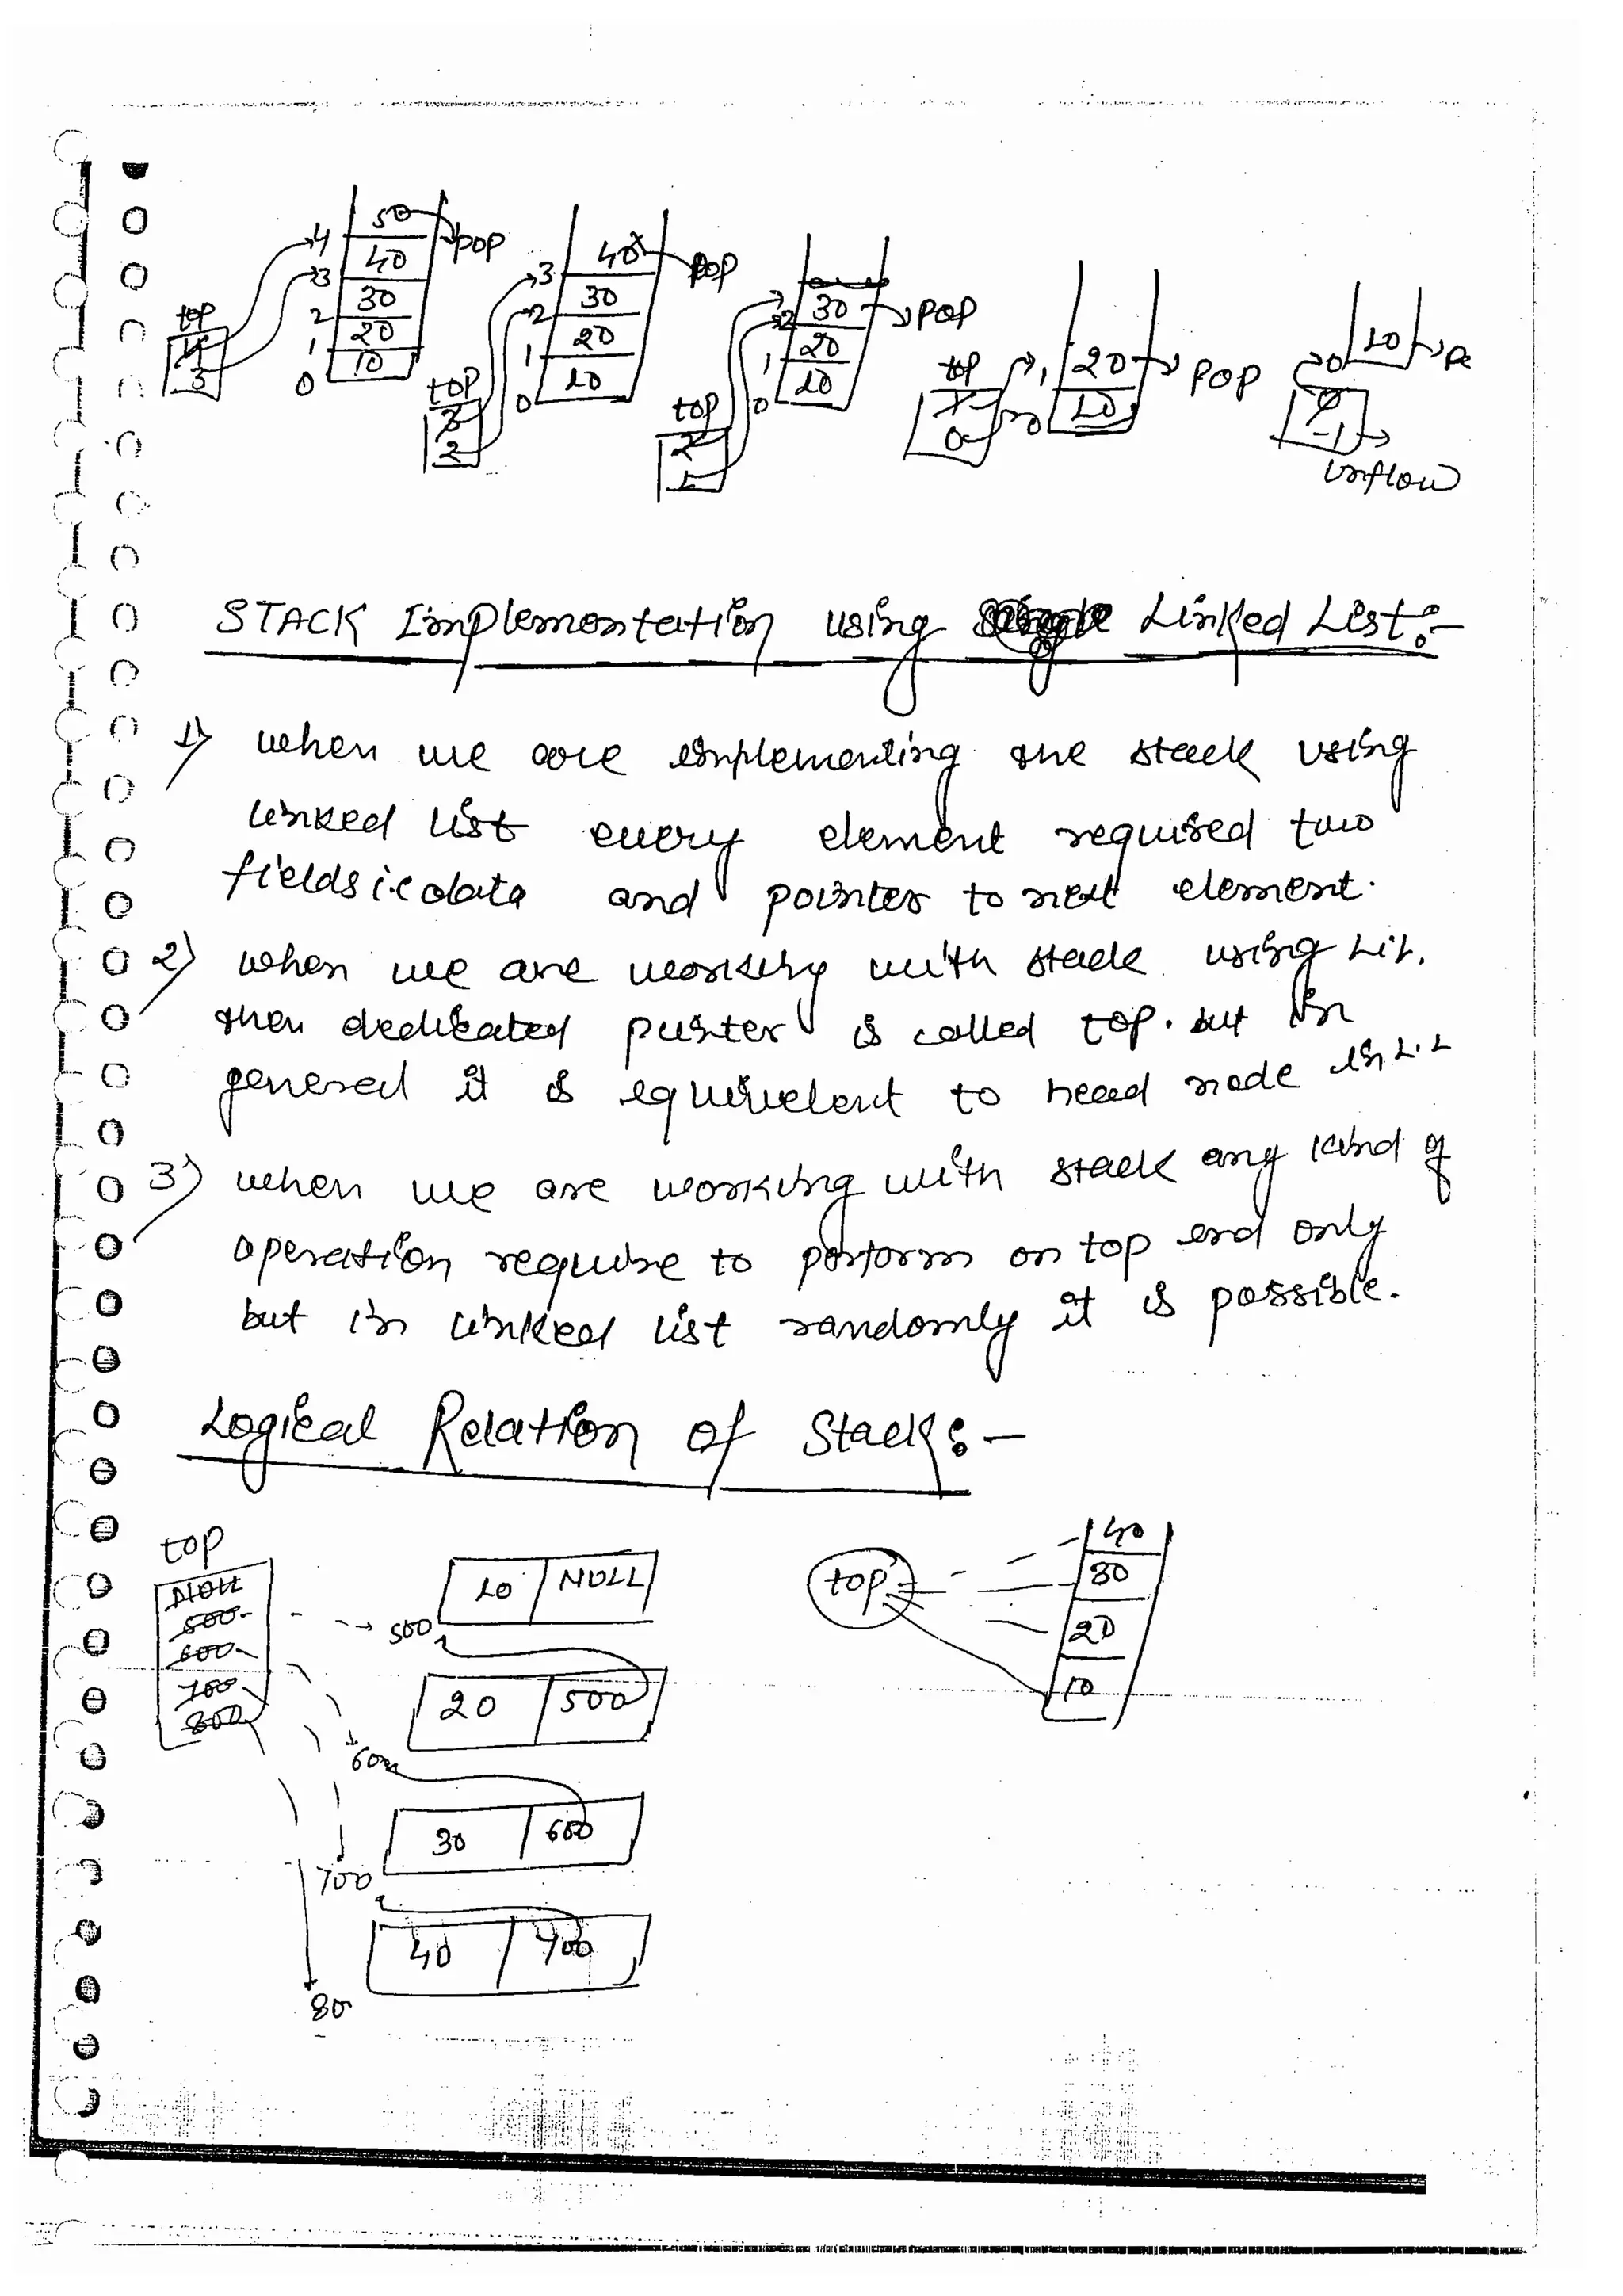 50
4 40 pop
3 30
2 20
1 10
0
top
4
3
40 pop
3 30
2 20
1 10
0
top
3
2
30 pop
2 20
1 10
0
top
2
1
20 pop
1 10
0
top
1
0
10
0
0
-1
unflow
STACK Implementation using Linked List:-
1) when we are implementing the stack using
linked list every element required two
fields i.e data and pointer to next element.
2) when we are working with stack using L.L.
then dedicated pointer is called top. but in
general it is equivelent to head node in L.L
3) when we are working with stack any kind of
operation require to perform on top end only
but in linked list randomly it is possible.
Logical Relation of Stack:-
top
NULL
500
600
700
800
10 NULL
500
20 500
600
30 600
700
40 700
80
top
40
30
20
10